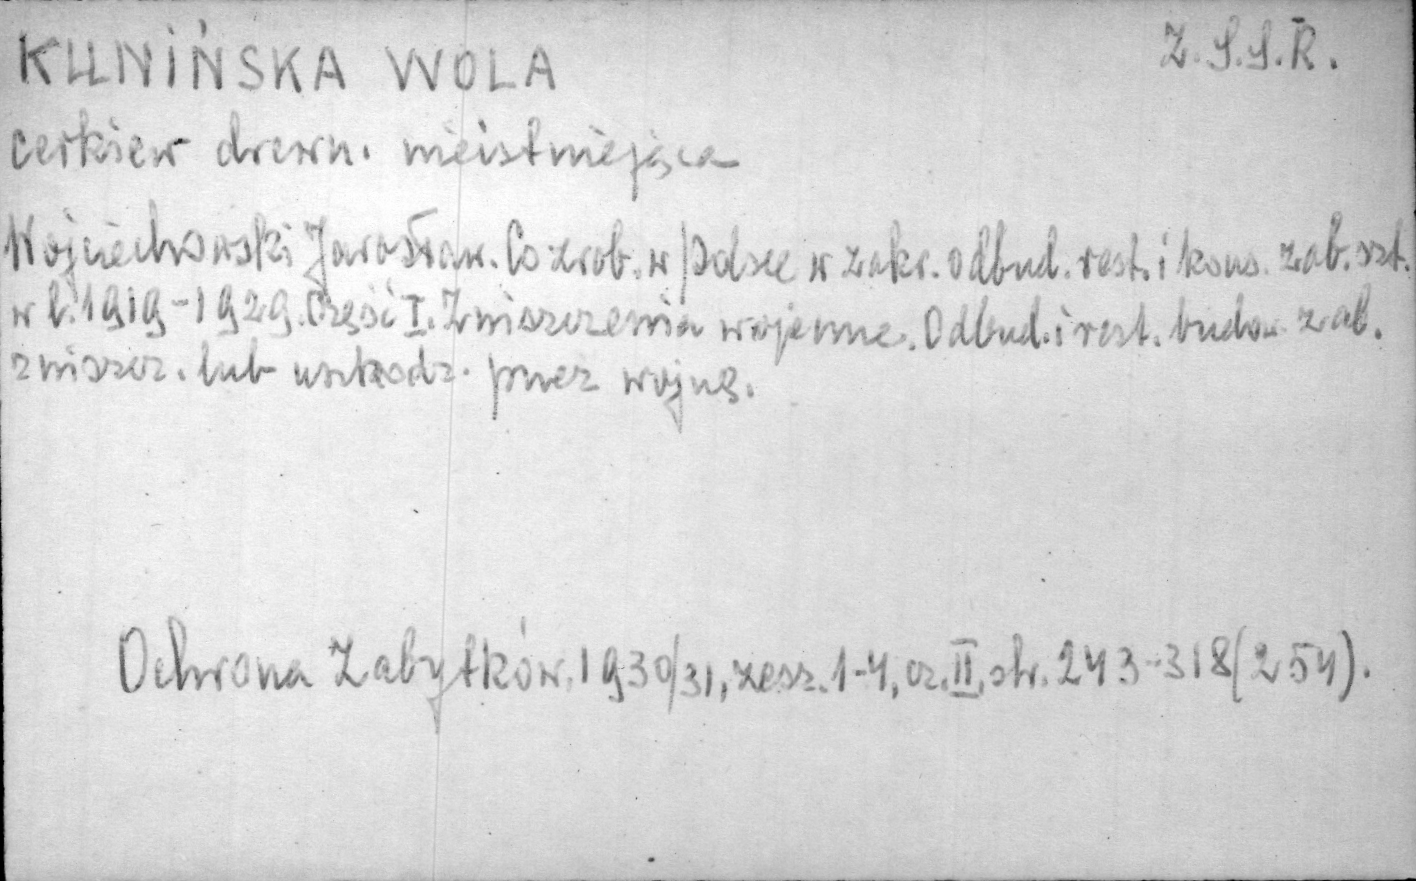 KUNIŃSKA WOLA Z.S.S.R.
cerkiew drewn. nieistniejąca
Wojciechowski Jarosław. Co zrob. w Polsce w zakr. odbud. rest. i kons. zab. szt.
w l. 1919-1929. Część I. Zniszczenia wojenne. Odbud. i rest. budow. zab.
zniszcz. lub uszkodz. przez wojnę.
Ochrona Zabytków, 1930/31, zesz. 1-4, cz. II, str. 243-318 (254).